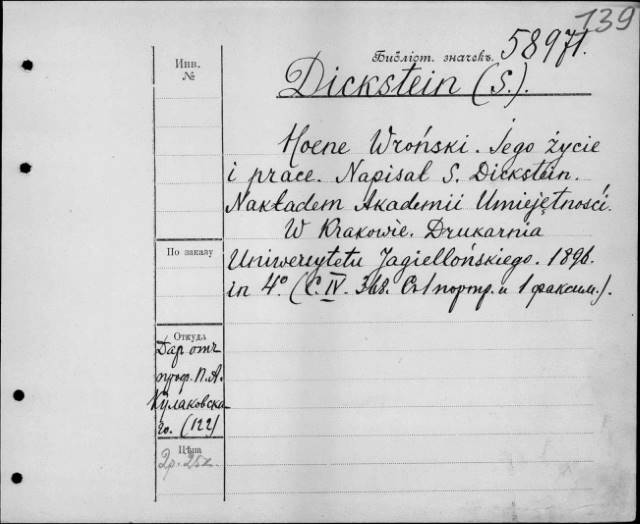 139
Библіот. значекъ. 58971.
Инв.
№
Dickstein (S.).
Hoene Wroński. Jego życie
i prace. Napisał S. Dickstein.
Nakładem Akademii Umiejętności.
W Krakowie. Drukarnia
По заказу
Uniwersytetu Jagiellońskiego. 1896.
in 4º. (С. IV. 368. Съ 1 портр. и 1 факсим.).
Откуда
Даръ отъ
проф. П. А.
Кулаковска-
го. (122)
Цѣна
2р. 25к.